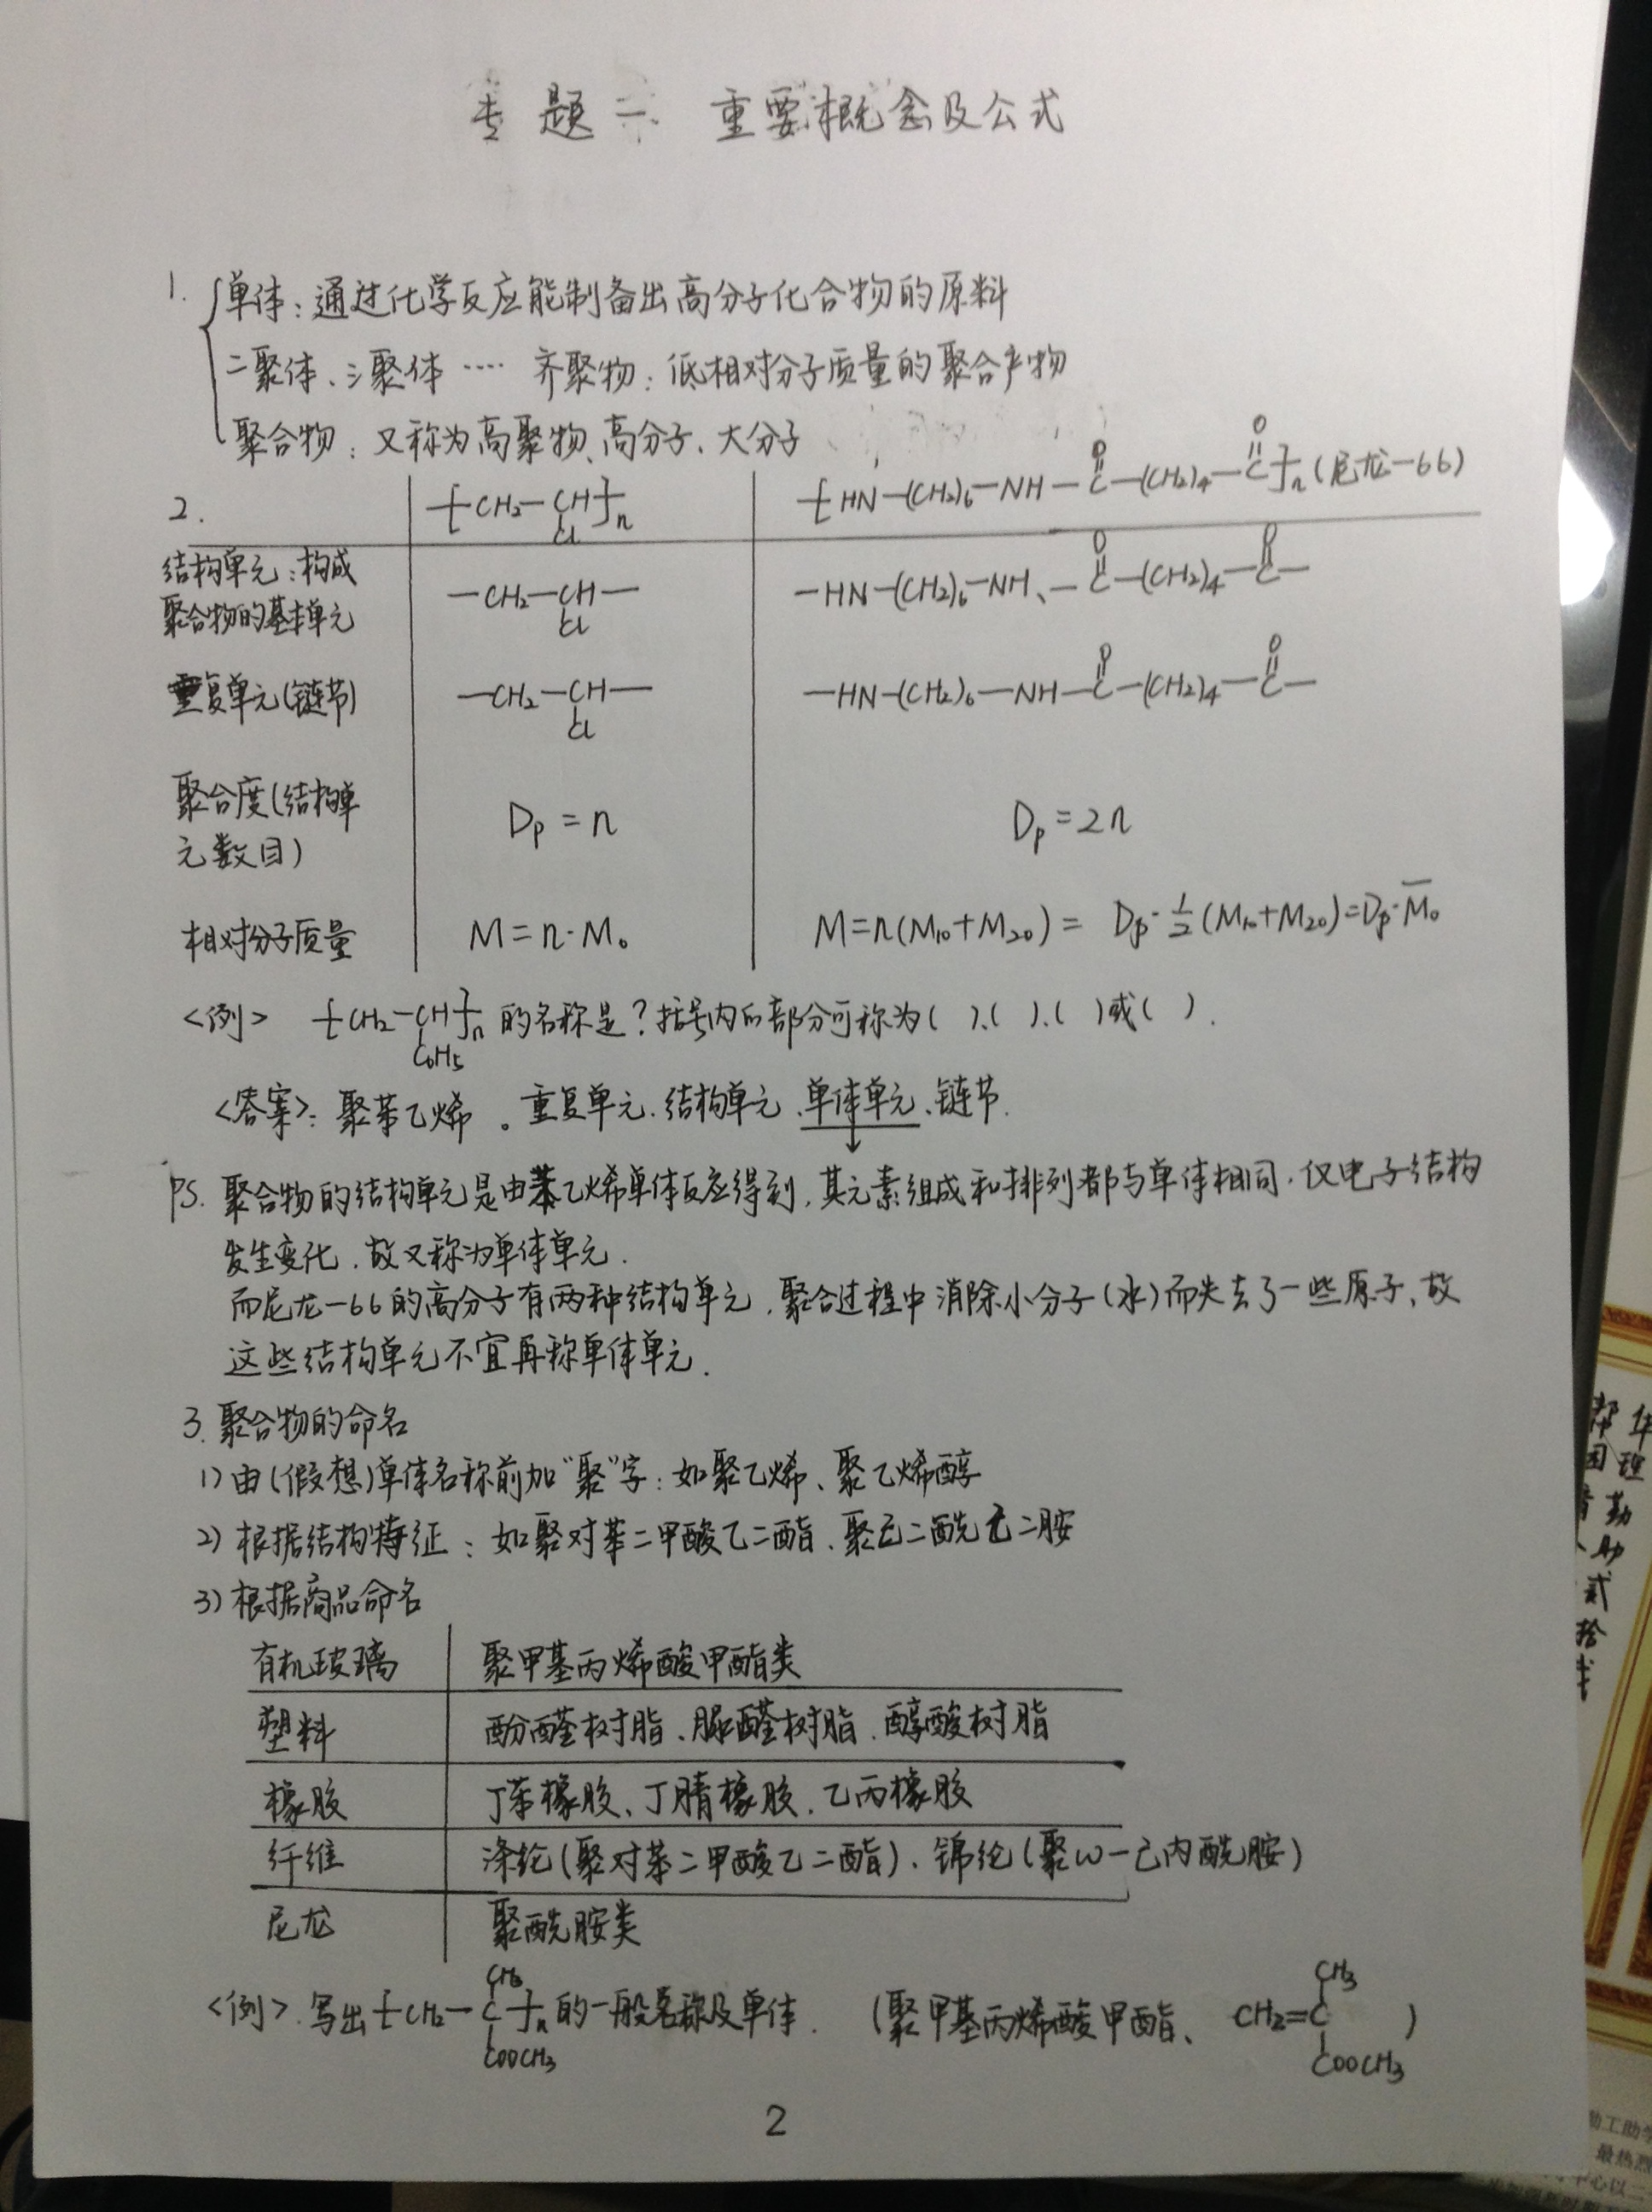 专题一. 重要概念及公式
1. 单体：通过化学反应能制备出高分子化合物的原料
二聚体、三聚体 …… 齐聚物：低相对分子质量的聚合产物
聚合物：又称为高聚物、高分子、大分子
2. -[CH₂-CH(Cl)]n- -[HN-(CH₂)₆-NH-C(=O)-(CH₂)₄-C(=O)]n (尼龙-66)
结构单元：构成
聚合物的基本单元 -CH₂-CH(Cl)- -HN-(CH₂)₆-NH、-C(=O)-(CH₂)₄-C(=O)-
重复单元(链节) -CH₂-CH(Cl)- -HN-(CH₂)₆-NH-C(=O)-(CH₂)₄-C(=O)-
聚合度(结构单
元数目) Dp = n Dp = 2n
相对分子质量 M = n·M₀ M=n(M₁₀+M₂₀) = Dp·½(M₁₀+M₂₀)=Dp·M̄₀
<例> -[CH₂-CH(C₆H₅)]n 的名称是？括号内的部分可称为( )、( )、( )或( ).
<答案>：聚苯乙烯。重复单元、结构单元、单体单元、链节.
PS. 聚合物的结构单元是由苯乙烯单体反应得到，其元素组成和排列都与单体相同，仅电子结构
发生变化，故又称为单体单元.
而尼龙-66的高分子有两种结构单元，聚合过程中消除小分子(水)而失去了一些原子，故
这些结构单元不宜再称单体单元.
3. 聚合物的命名
1) 由(假想)单体名称前加“聚”字：如聚乙烯、聚乙烯醇
2) 根据结构特征：如聚对苯二甲酸乙二酯、聚己二酰己二胺
3) 根据商品命名
有机玻璃 聚甲基丙烯酸甲酯类
塑料 酚醛树脂、脲醛树脂、醇酸树脂
橡胶 丁苯橡胶、丁腈橡胶、乙丙橡胶
纤维 涤纶(聚对苯二甲酸乙二酯)、锦纶(聚ω-己内酰胺)
尼龙 聚酰胺类
<例>. 写出-[CH₂-C(CH₃)(COOCH₃)]n 的一般名称及单体. (聚甲基丙烯酸甲酯、 CH₂=C(CH₃)COOCH₃ )
2
华理勤助